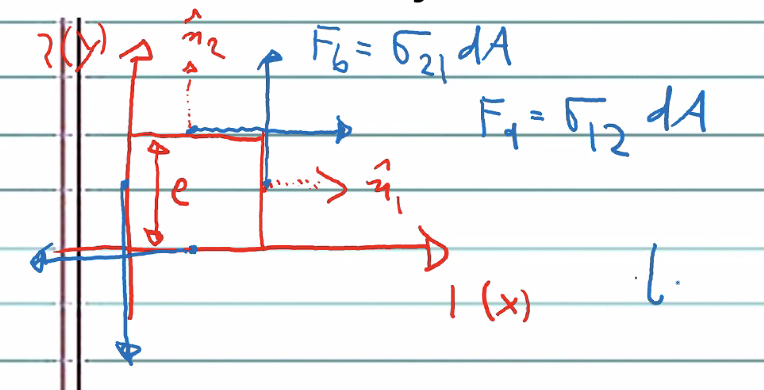 2(y)
n̂₂
F_b = σ₂₁ dA
F_a = σ₁₂ dA
e
n̂₁
1 (x)